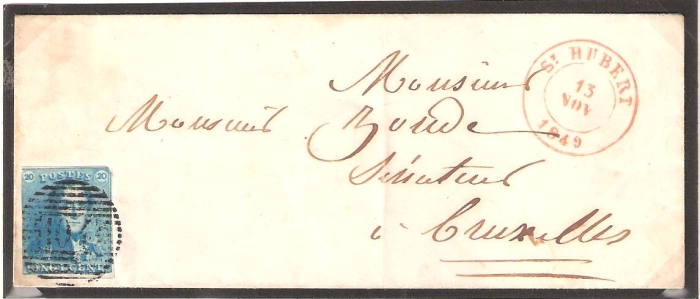 Monsieur
Monsieur Zoude
Sénateur
à Bruxelles
St HUBERT
13
NOV
1849
20 POSTES 20